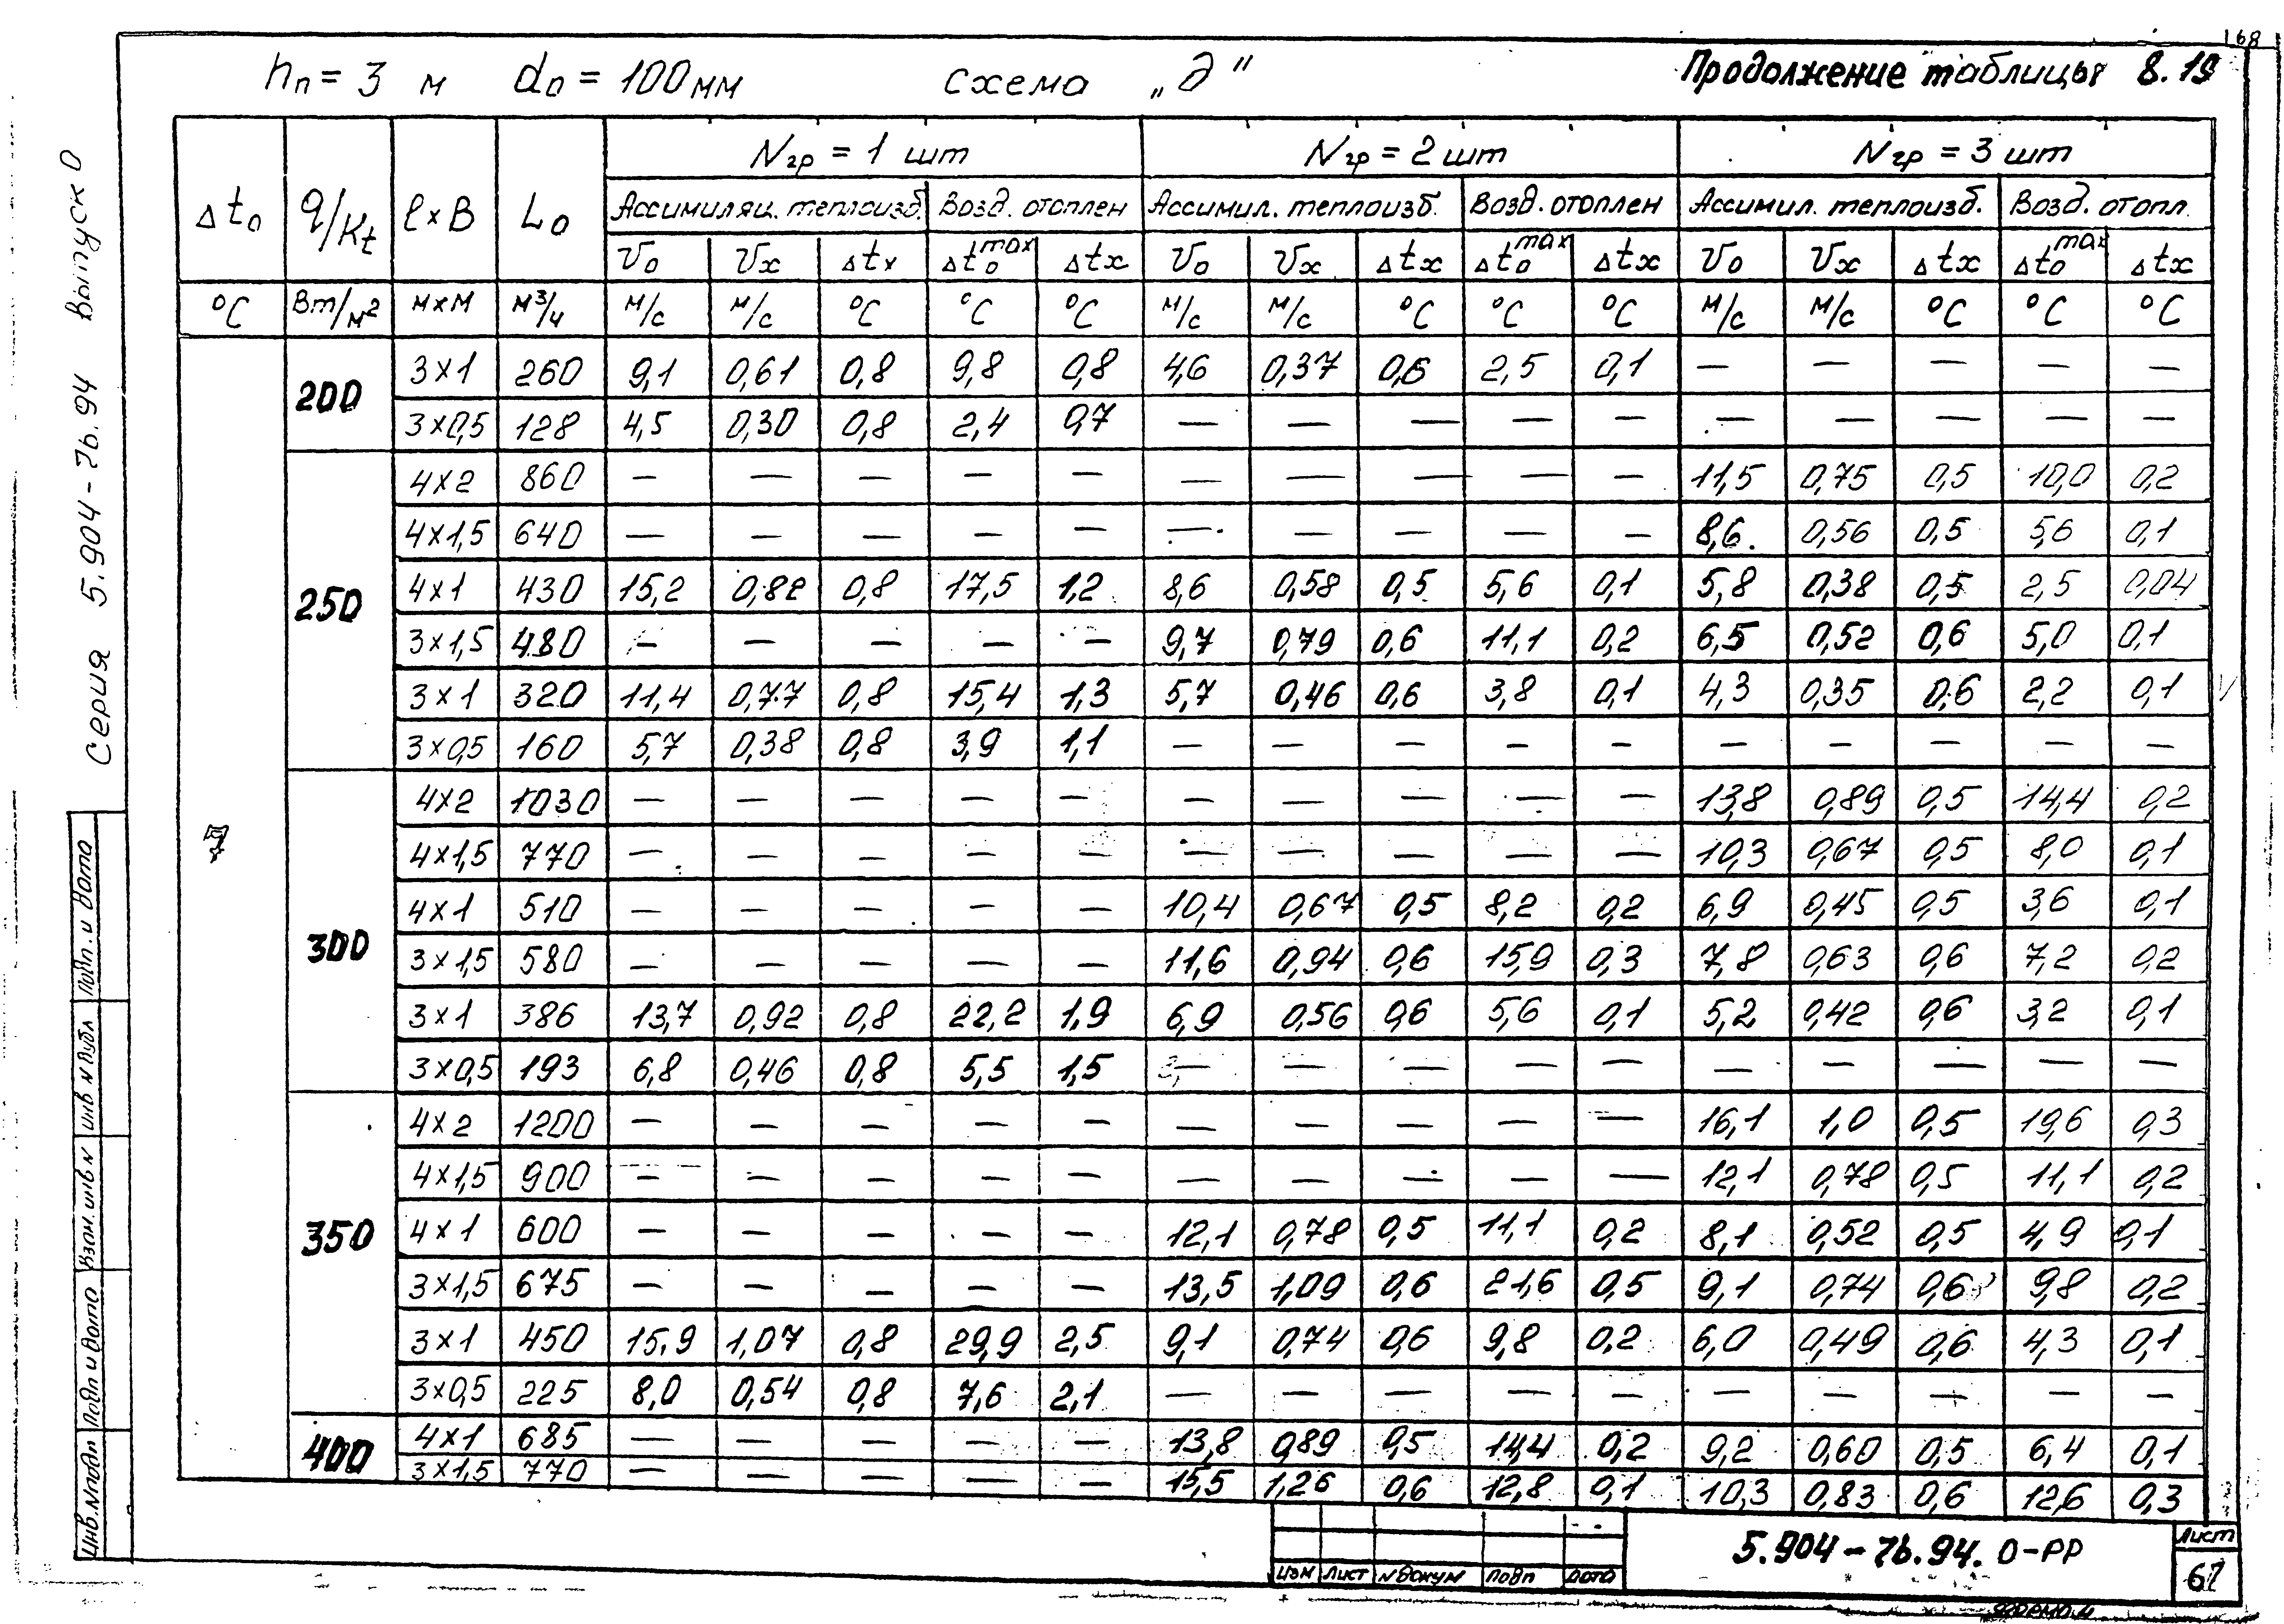 168
hп = 3 м dо = 100мм схема „д" Продолжение таблицы 8.19
Серия 5.904-7в.94 Выпуск 0
Δtо q/Kt ℓ×B Lо Nгр = 1 шт Nгр = 2 шт Nгр = 3 шт
Ассимиляц. теплоизб. Возд. отоплен Ассимил. теплоизб. Возд. отоплен Ассимил. теплоизб. Возд. отопл.
Vо Vх Δtх Δtоmax Δtх Vо Vх Δtх Δtоmax Δtх Vо Vх Δtх Δtоmax Δtх
°С Вт/м² м×м м³/ч м/с м/с °С °С °С м/с м/с °С °С °С м/с м/с °С °С °С
7
200 3×1 260 9,1 0,61 0,8 9,8 0,8 4,6 0,37 0,6 2,5 0,1 — — — — —
3×0,5 128 4,5 0,30 0,8 2,4 0,7 — — — — — — — — — —
250 4×2 860 — — — — — — — — — — 11,5 0,75 0,5 10,0 0,2
4×1,5 640 — — — — — — — — — — 8,6 0,56 0,5 5,6 0,1
4×1 430 15,2 0,82 0,8 17,5 1,2 8,6 0,58 0,5 5,6 0,1 5,8 0,38 0,5 2,5 0,04
3×1,5 480 — — — — — 9,7 0,79 0,6 11,1 0,2 6,5 0,52 0,6 5,0 0,1
3×1 320 11,4 0,77 0,8 15,4 1,3 5,7 0,46 0,6 3,8 0,1 4,3 0,35 0,6 2,2 0,1
3×0,5 160 5,7 0,38 0,8 3,9 1,1 — — — — — — — — — —
300 4×2 1030 — — — — — — — — — — 13,8 0,89 0,5 14,4 0,2
4×1,5 770 — — — — — — — — — — 10,3 0,67 0,5 8,0 0,1
4×1 510 — — — — — 10,4 0,67 0,5 8,2 0,2 6,9 0,45 0,5 3,6 0,1
3×1,5 580 — — — — — 11,6 0,94 0,6 15,9 0,3 7,8 0,63 0,6 7,2 0,2
3×1 386 13,7 0,92 0,8 22,2 1,9 6,9 0,56 0,6 5,6 0,1 5,2 0,42 0,6 3,2 0,1
3×0,5 193 6,8 0,46 0,8 5,5 1,5 — — — — — — — — — —
350 4×2 1200 — — — — — — — — — — 16,1 1,0 0,5 19,6 0,3
4×1,5 900 — — — — — — — — — — 12,1 0,78 0,5 11,1 0,2
4×1 600 — — — — — 12,1 0,78 0,5 11,1 0,2 8,1 0,52 0,5 4,9 0,1
3×1,5 675 — — — — — 13,5 1,09 0,6 21,6 0,5 9,1 0,74 0,6 9,8 0,2
3×1 450 15,9 1,07 0,8 29,9 2,5 9,1 0,74 0,6 9,8 0,2 6,0 0,49 0,6 4,3 0,1
3×0,5 225 8,0 0,54 0,8 7,6 2,1 — — — — — — — — — —
400 4×1 685 — — — — — 13,8 0,89 0,5 14,4 0,2 9,2 0,60 0,5 6,4 0,1
3×1,5 770 — — — — — 15,5 1,26 0,6 12,8 0,1 10,3 0,83 0,6 12,6 0,3
Инв.№подл Подп и дата Взам. инв № Инв № дубл Подп. и дата
Изм Лист № докум Подп Дата
5.904-7в.94. 0-РР
Лист
67